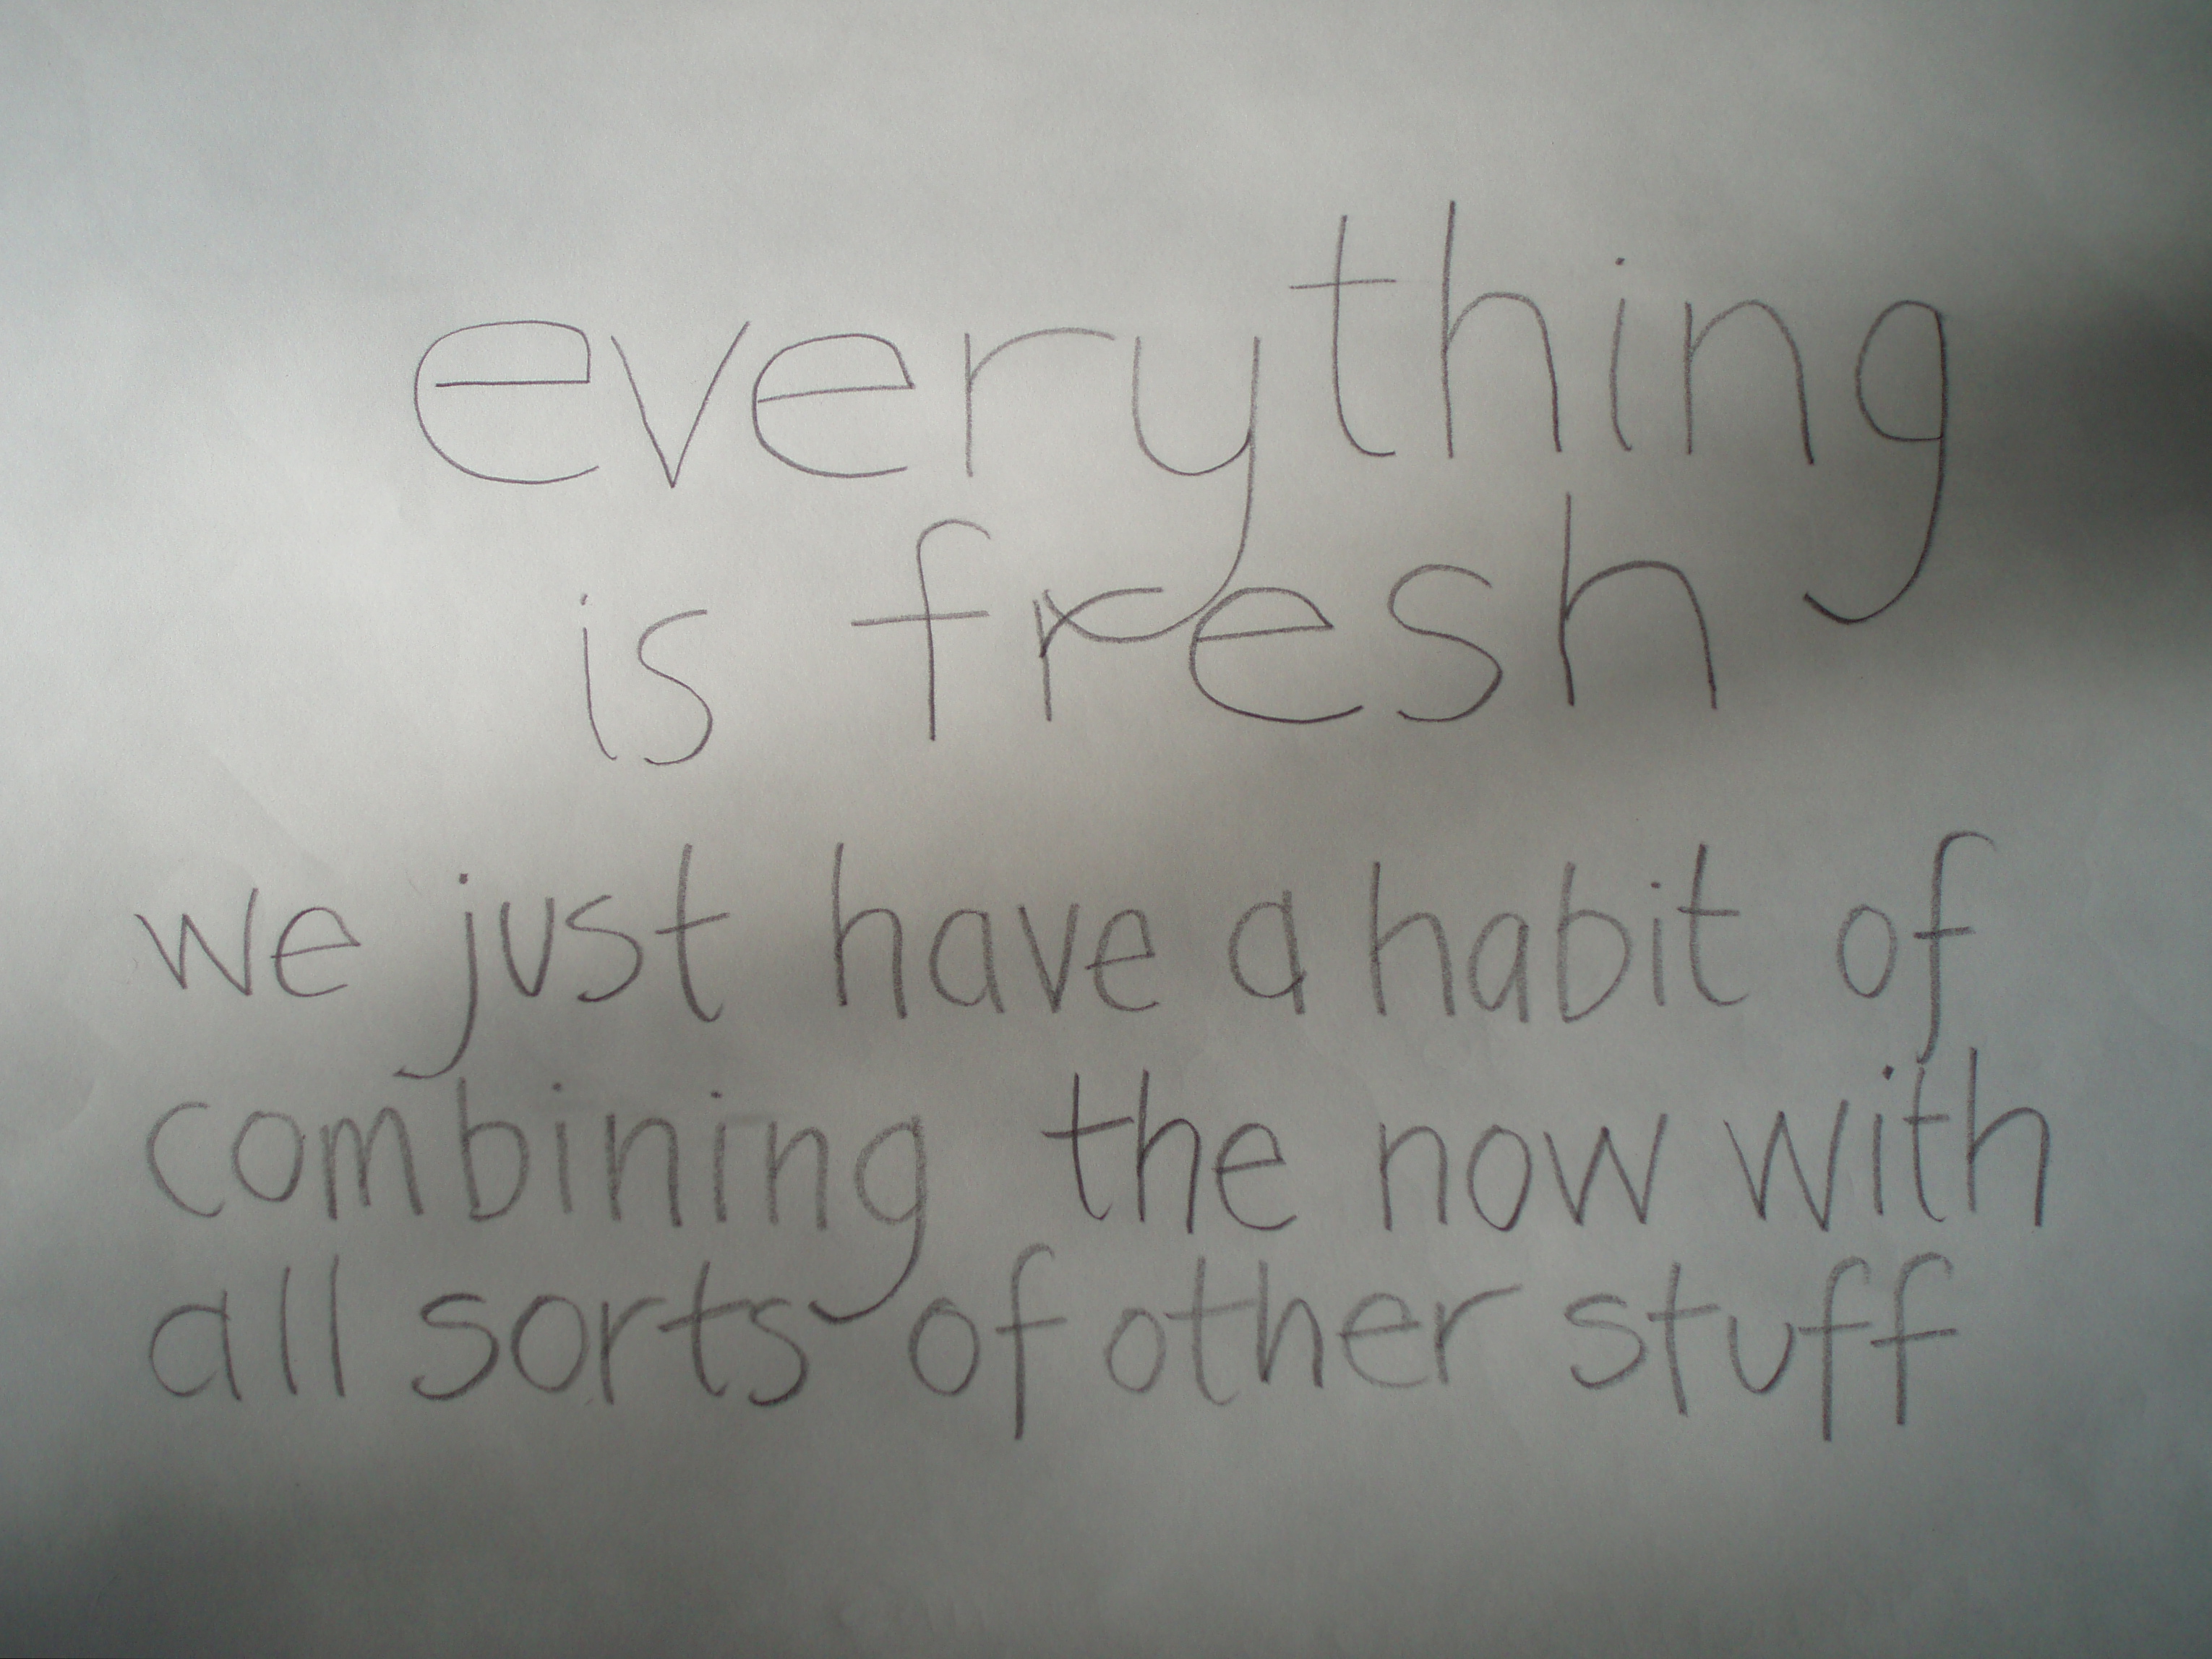 everything
is fresh
we just have a habit of
combining the now with
all sorts of other stuff